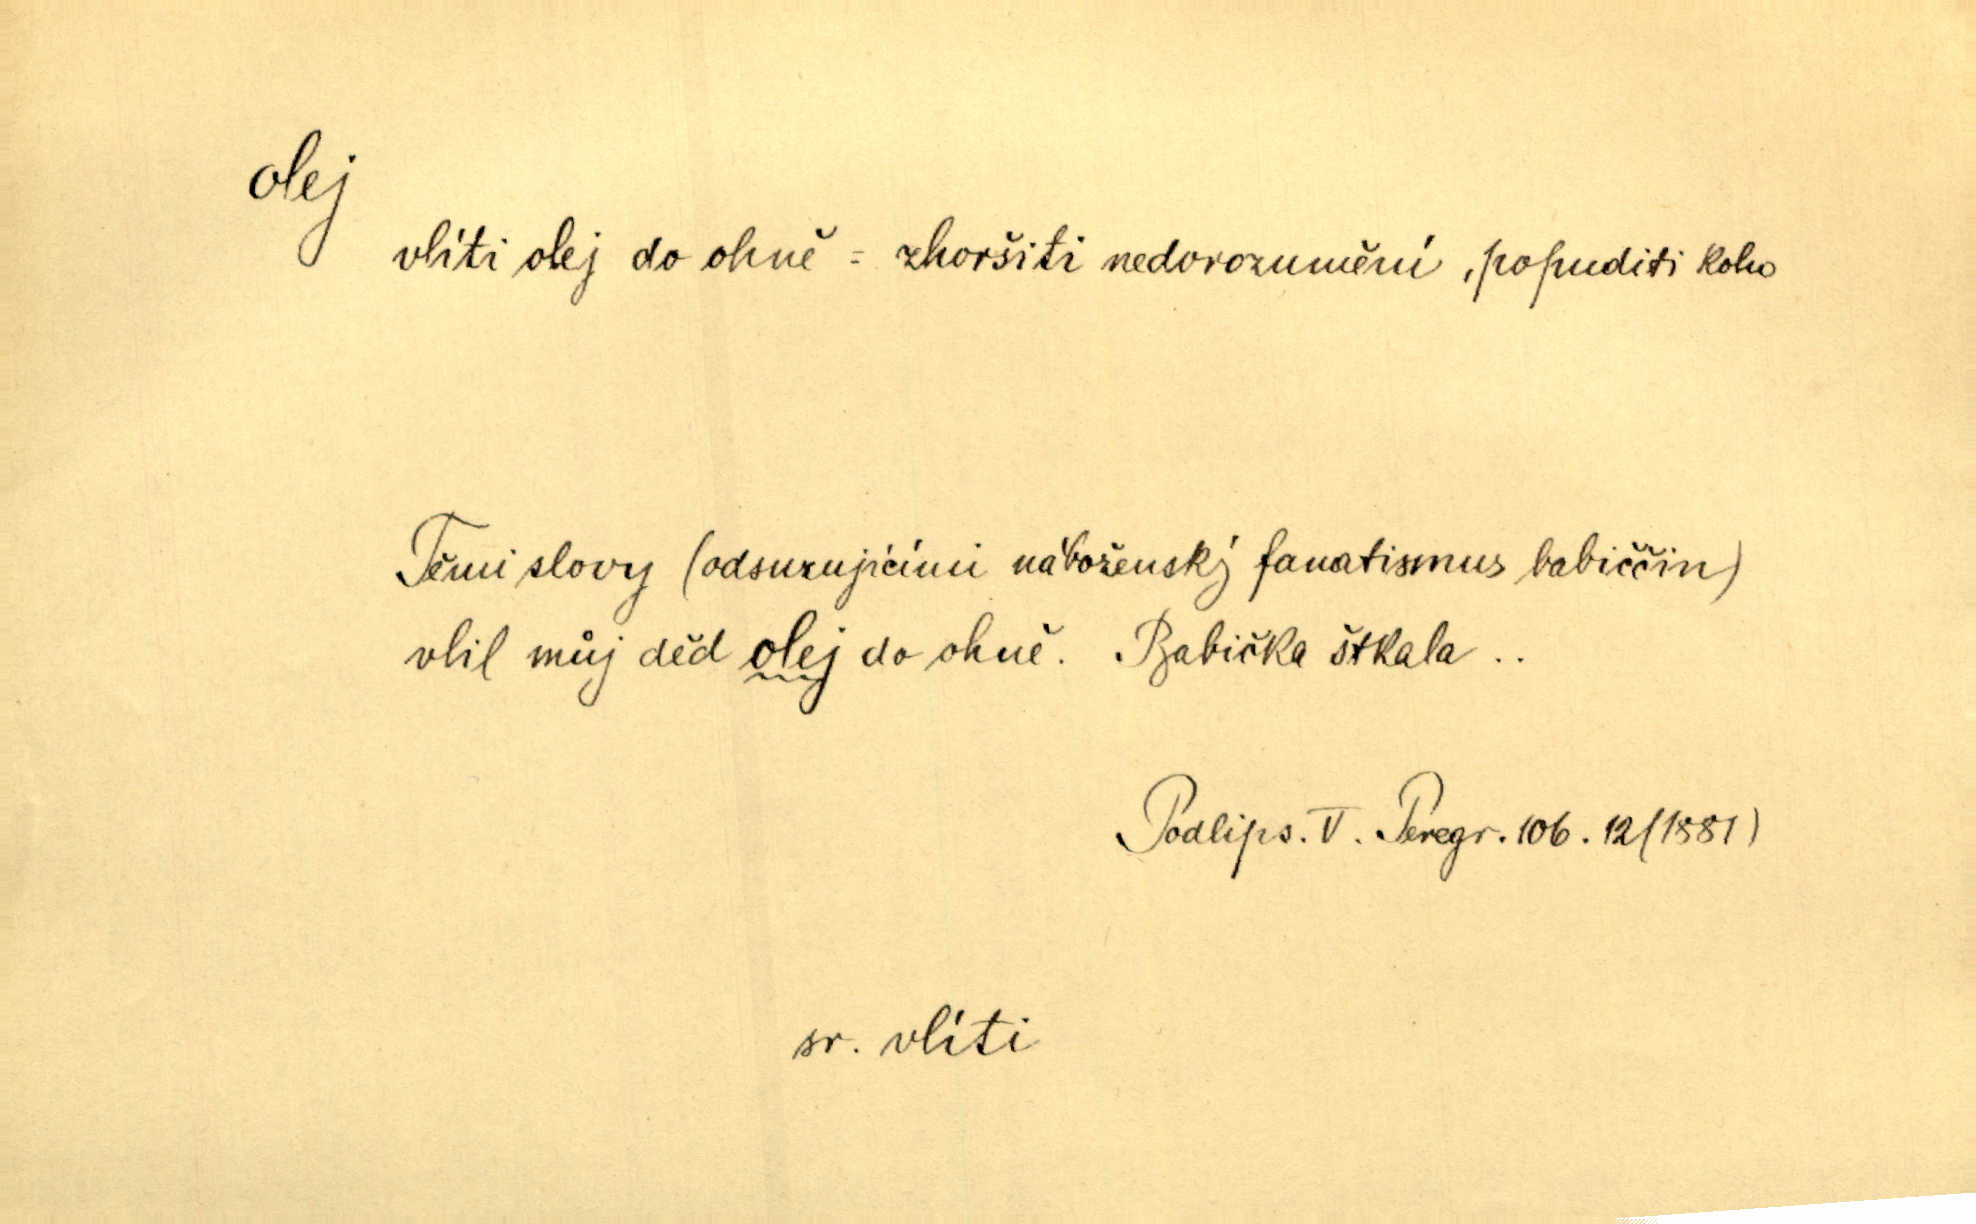 olej
vlíti olej do ohně = zhoršiti nedorozumění, popuditi koho
Těmi slovy (odsuzujícími náboženský fanatismus babiččin)
vlil můj děd olej do ohně. Babička štkala ..
Podlips. V. Peregr. 106. 12 (1881)
sr. vlíti